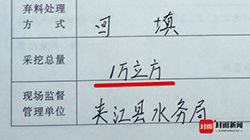 弃料处理
方式
回填
采挖总量
1万立方
现场监督
管理单位
夹江县水务局
封面新闻